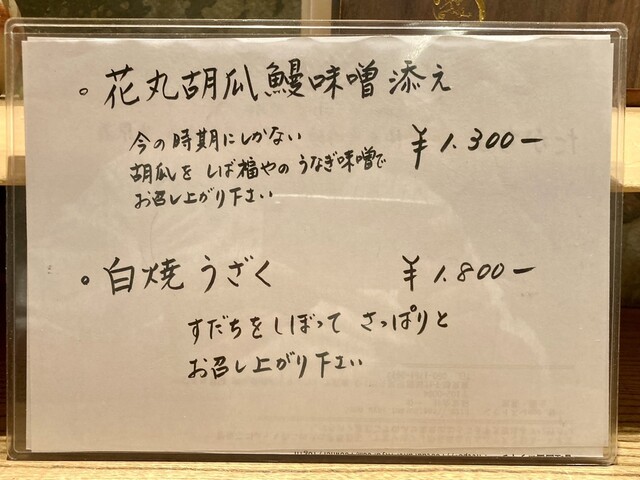 。花丸胡瓜鰻味噌添え
今の時期にしかない
胡瓜を しば福やの うなぎ味噌で
お召し上がり下さい
¥1.300-
。白焼 うざく ¥1.800-
すだちを しぼって さっぱりと
お召し上がり下さい